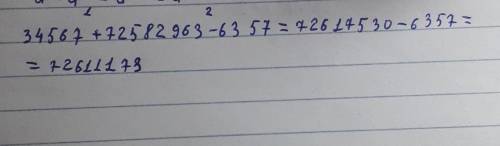 1 2
34567+72582963-6357=72617530-6357=
=72611173